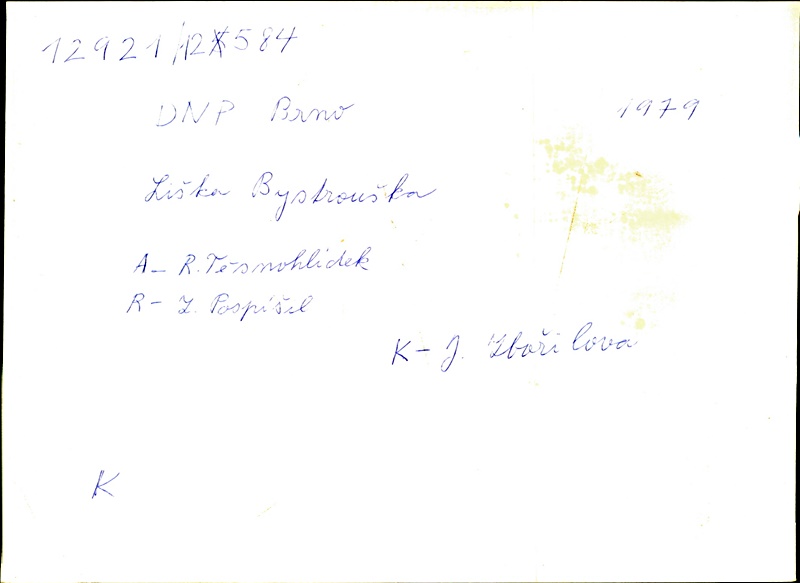 12921/12K584
DNP Brno 1979
Liška Bystrouška
A- R. Těsnohlidek
R- Z. Pospíšil
K- J. Zbořilova
K